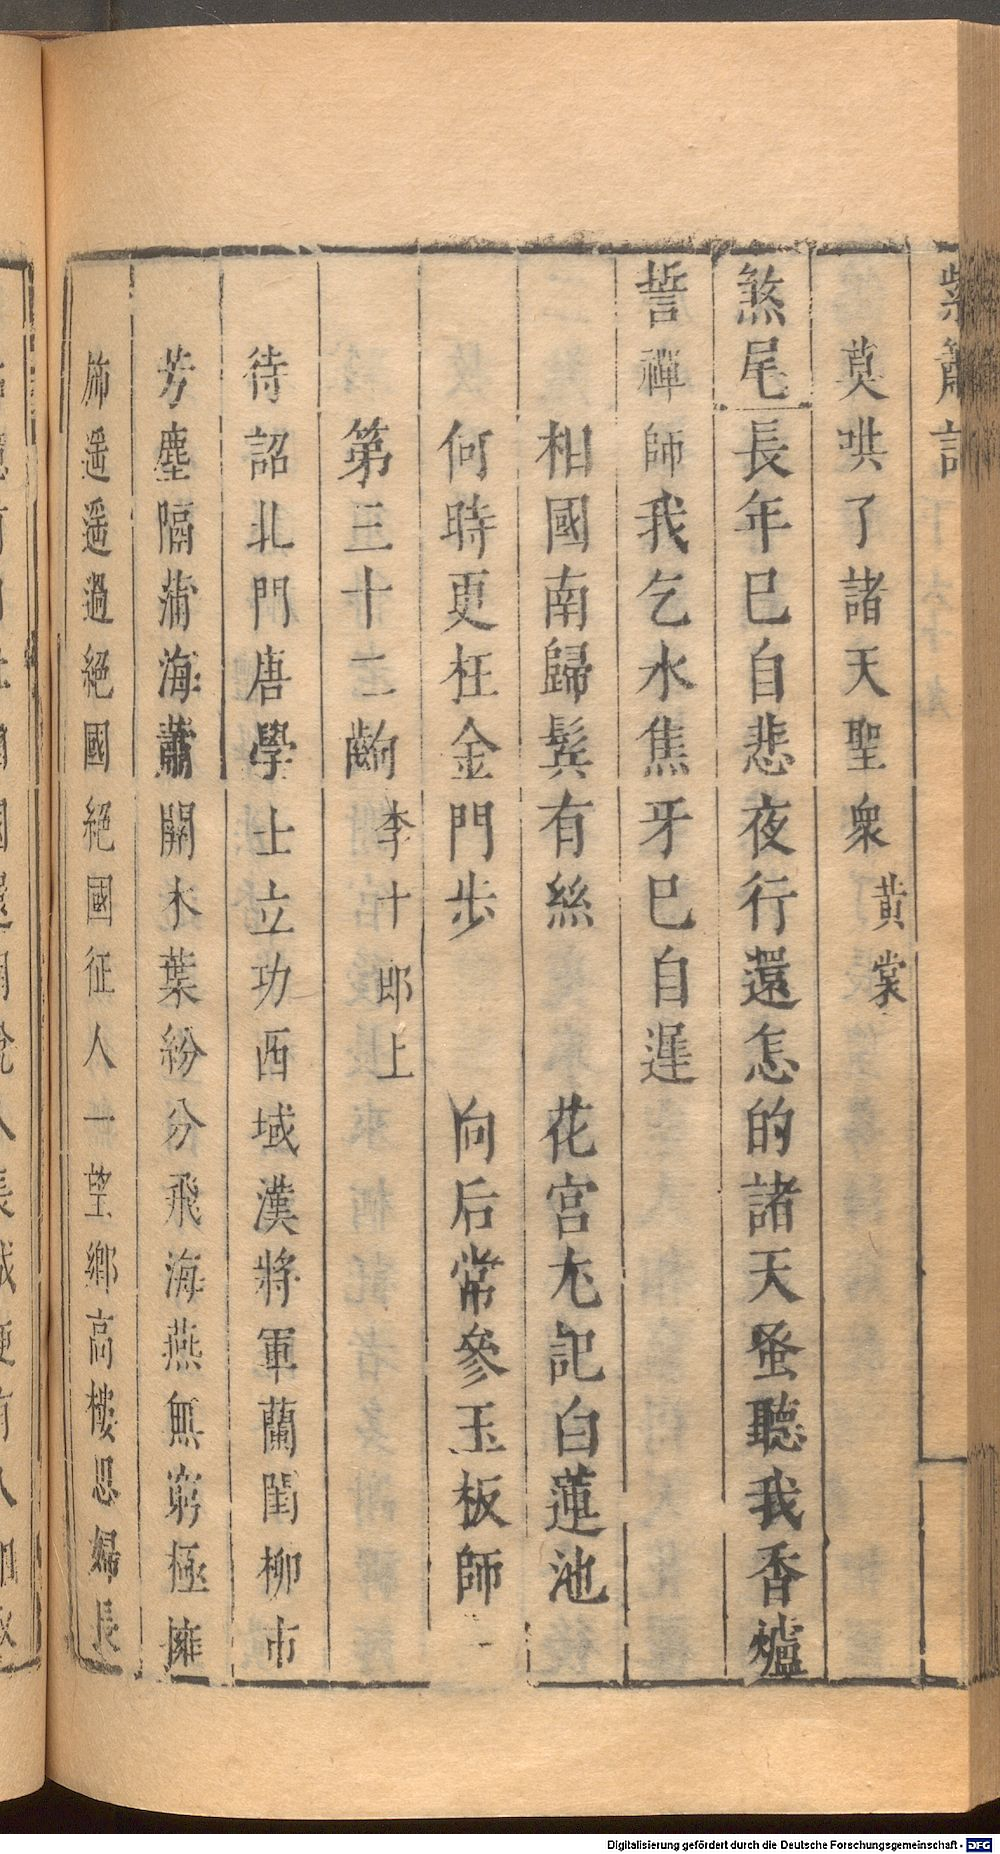 紫簫記
莫哄了諸天聖衆黃裳
煞尾長年已自悲夜行還怎的諸天蚤聽我香爐
誓禪師我乞水焦牙巳自遲
相國南歸鬂有絲 花宮尢記白蓮池
何時更枉金門步 向后常參玉板師
第三十二齣 李十郎上
待詔北門唐學士立功西域漢將軍蘭閨柳市
芳塵隔蒲海蕭關木葉紛分飛海燕無窮極擁
斾遥遥過絕國絕國征人一望鄉高樓思婦長
Digitalisierung gefördert durch die Deutsche Forschungsgemeinschaft - DFG